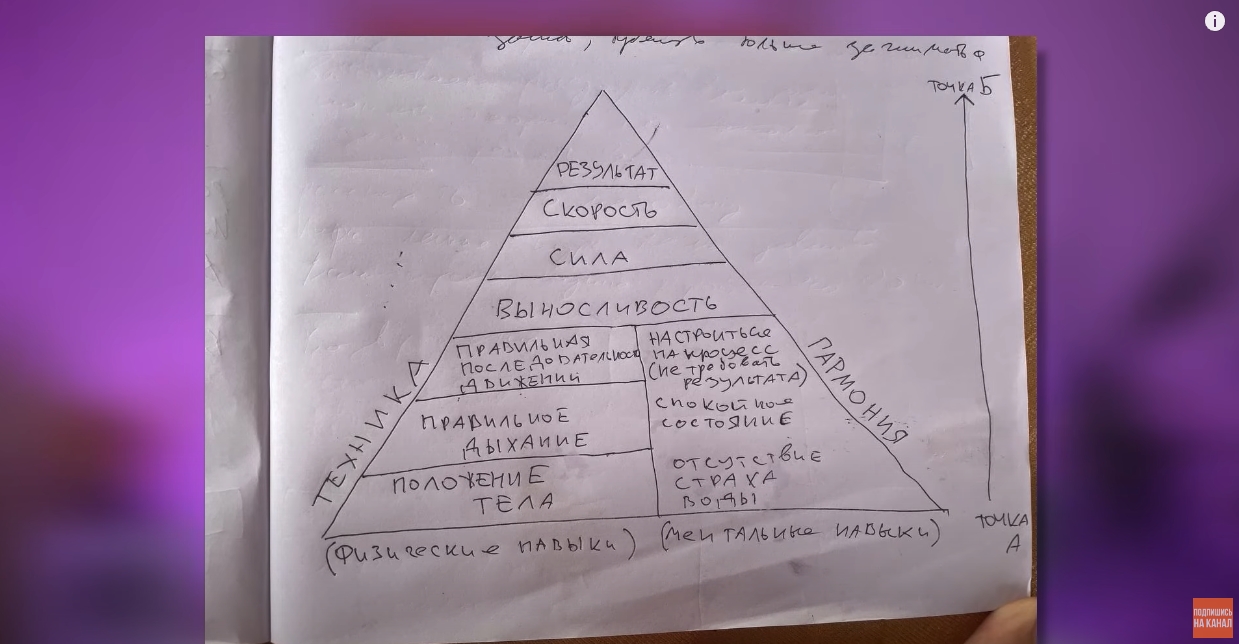 больше зачимать
ТОЧКА Б
РЕЗУЛЬТАТ
СКОРОСТЬ
СИЛА
ВЫНОСЛИВОСТЬ
ПРАВИЛЬНАЯ
ПОСЛЕДОВАТЕЛЬНОСТЬ
ДВИЖЕНИЙ
ПРАВИЛЬНОЕ
ДЫХАНИЕ
ПОЛОЖЕНИЕ
ТЕЛА
НАСТРОИТЬСЯ
НА ПРОЦЕСС
(НЕ ТРЕБОВАТЬ
РЕЗУЛЬТАТА)
СПОКОЙНОЕ
СОСТОЯНИЕ
ОТСУТСТВИЕ
СТРАХА
ВОДЫ
ТЕХНИКА
ГАРМОНИЯ
(ФИЗИЧЕСКИЕ НАВЫКИ)
(МЕНТАЛЬНЫЕ НАВЫКИ)
ТОЧКА
А
ПОДПИШИСЬ
НА КАНАЛ